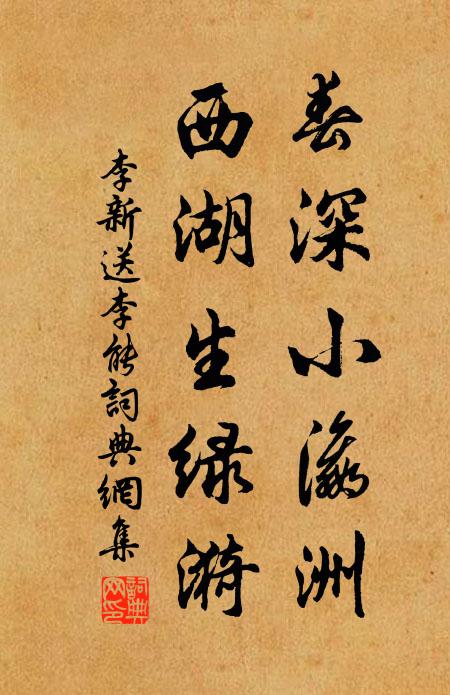 春深小瀛洲
西湖生绿漪
李新送李能詞典網集
詞典网印